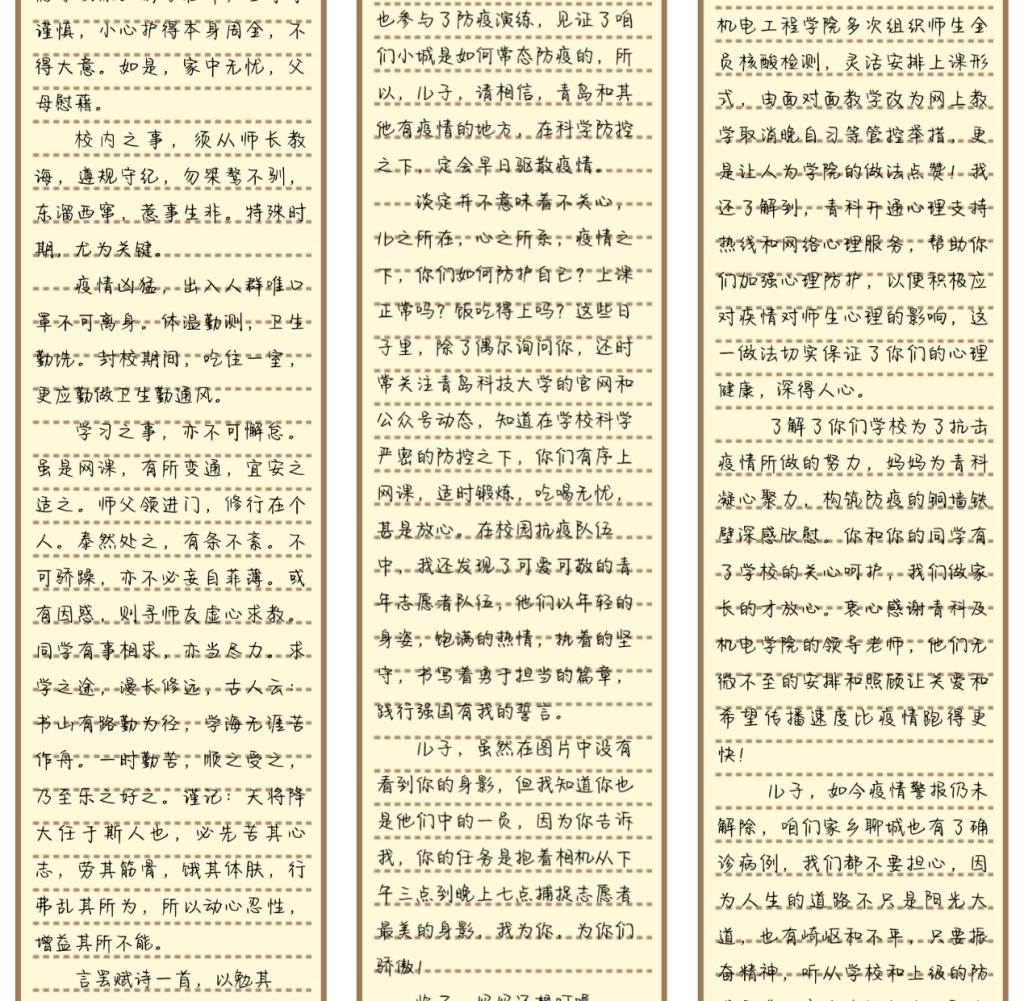 谨慎，小心护得本身周全，不
得大意。如是，家中无忧，父
母慰藉。
校内之事，须从师长教
海，遵规守纪，勿桀骜不驯，
东溜西窜，惹事生非。特殊时
期，尤为关键。
疫情凶猛，出入人群唯口
罩不可离身。体温勤测，卫生
勤洗。封校期间，吃住一室，
更应勤做卫生勤通风。
学习之事，亦不可懈怠。
虽是网课，有所变通，宜安之
适之。师父领进门，修行在个
人。泰然处之，有条不紊。不
可骄躁，亦不必妄自菲薄。或
有困惑，则寻师友虚心求教。
同学有事相求，亦当尽力。求
学之途，漫长修远，古人云：
书山有路勤为径，学海无涯苦
作舟。一时勤苦，顺之受之，
乃至乐之好之。谨记：天将降
大任于斯人也，必先苦其心
志，劳其筋骨，饿其体肤，行
弗乱其所为，所以动心忍性，
增益其所不能。
言罢赋诗一首，以勉其
也参与了防疫演练，见证了咱
们小城是如何常态防疫的，所
以，儿子，请相信，青岛和其
他有疫情的地方，在科学防控
之下，定会早日驱散疫情。
淡定并不意味着不关心，
儿之所在，心之所系，疫情之
下，你们如何防护自己？上课
正常吗？饭吃得上吗？这些日
子里，除了偶尔询问你，还时
常关注青岛科技大学的官网和
公众号动态，知道在学校科学
严密的防控之下，你们有序上
网课，适时锻炼，吃喝无忧，
甚是放心。在校园抗疫队伍
中，我还发现了可爱可敬的青
年志愿者队伍，他们以年轻的
身姿，饱满的热情，执着的坚
守，书写着勇于担当的篇章，
践行强国有我的誓言。
儿子，虽然在图片中没有
看到你的身影，但我知道你也
是他们中的一员，因为你告诉
我，你的任务是抱着相机从下
午三点到晚上七点捕捉志愿者
最美的身影，我为你，为你们
骄傲！
机电工程学院多次组织师生全
员核酸检测，灵活安排上课形
式，由面对面教学改为网上教
学取消晚自习等管控举措，更
是让人为学院的做法点赞！我
还了解到，青科开通心理支持
热线和网络心理服务，帮助你
们加强心理防护，以便积极应
对疾情对师生心理的影响，这
一做法切实保证了你们的心理
健康，深得人心。
了解了你们学校为了抗击
疫情所做的努力，妈妈为青科
凝心聚力，构筑防疫的铜墙铁
壁深感欣慰。你和你的同学有
了学校的关心呵护，我们做家
长的才放心。衷心感谢青科及
机电学院的领导老师，他们无
微不至的安排和照顾让关爱和
希望传播速度比疫情跑得更
快！
儿子，如今疫情警报仍未
解除，咱们家乡聊城也有了确
诊病例，我们都不要担心，因
为人生的道路不只是阳光大
道，也有崎岖和不平，只要振
奋精神，听从学校和上级的防